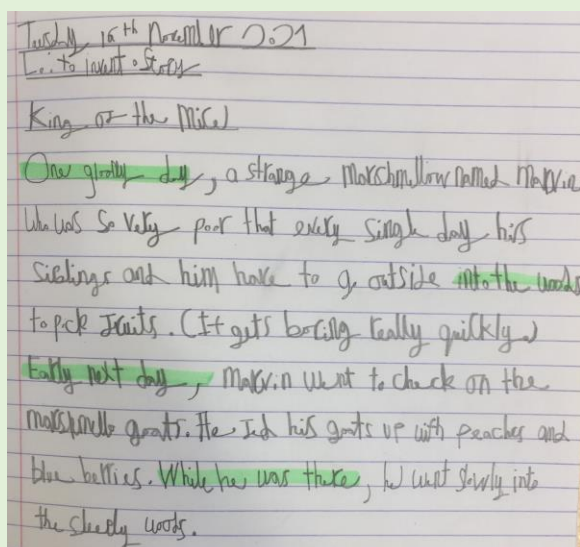 Tuesday 16th November 2021
L.i: to invent a Story
King of the Mice
One gloomy day, a strange marshmellow named Marvin
who was so very poor that every single day his
siblings and him have to go outside into the woods
to pick fruits. (It gets boring really quickly.)
Early next day, Marvin went to check on the
marshmello goats. He fed his goats up with peaches and
blue berries. While he was there, he went slowly into
the sleepy woods.